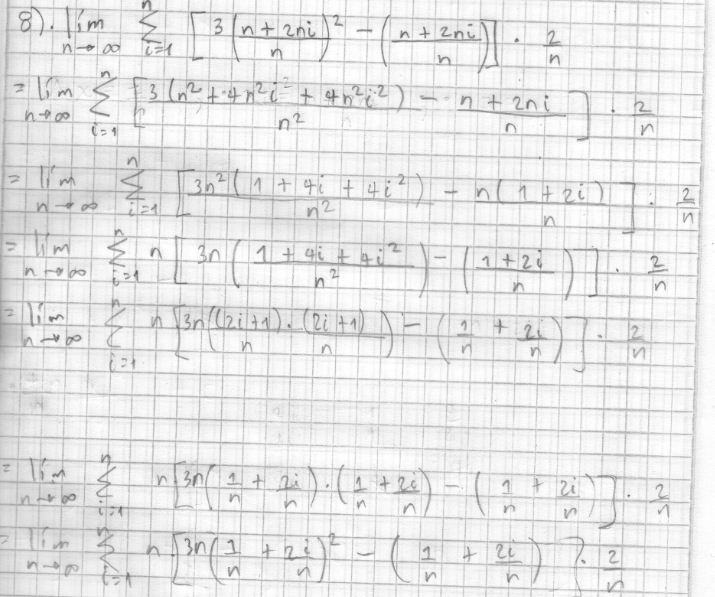 8). lím n→∞ n Σ i=1 [ 3 ( (n + 2ni) / n )² − ( (n + 2ni) / n ) ] · 2/n
= lím n→∞ n Σ i=1 [ 3(n² + 4n²i + 4n²i²) / n² − (n + 2ni) / n ] · 2/n
= lím n→∞ n Σ i=1 [ 3n² (1 + 4i + 4i²) / n² − n(1 + 2i) / n ] · 2/n
= lím n→∞ n Σ i=1 n [ 3n ( (1 + 4i + 4i²) / n² ) − ( (1 + 2i) / n ) ] · 2/n
= lím n→∞ n Σ i=1 n [ 3n ( (2i+1) / n · (2i+1) / n ) − ( 1/n + 2i/n ) ] · 2/n
= lím n→∞ n Σ i=1 n [ 3n ( 1/n + 2i/n ) · ( 1/n + 2i/n ) − ( 1/n + 2i/n ) ] · 2/n
= lím n→∞ n Σ i=1 n [ 3n ( 1/n + 2i/n )² − ( 1/n + 2i/n ) ] · 2/n